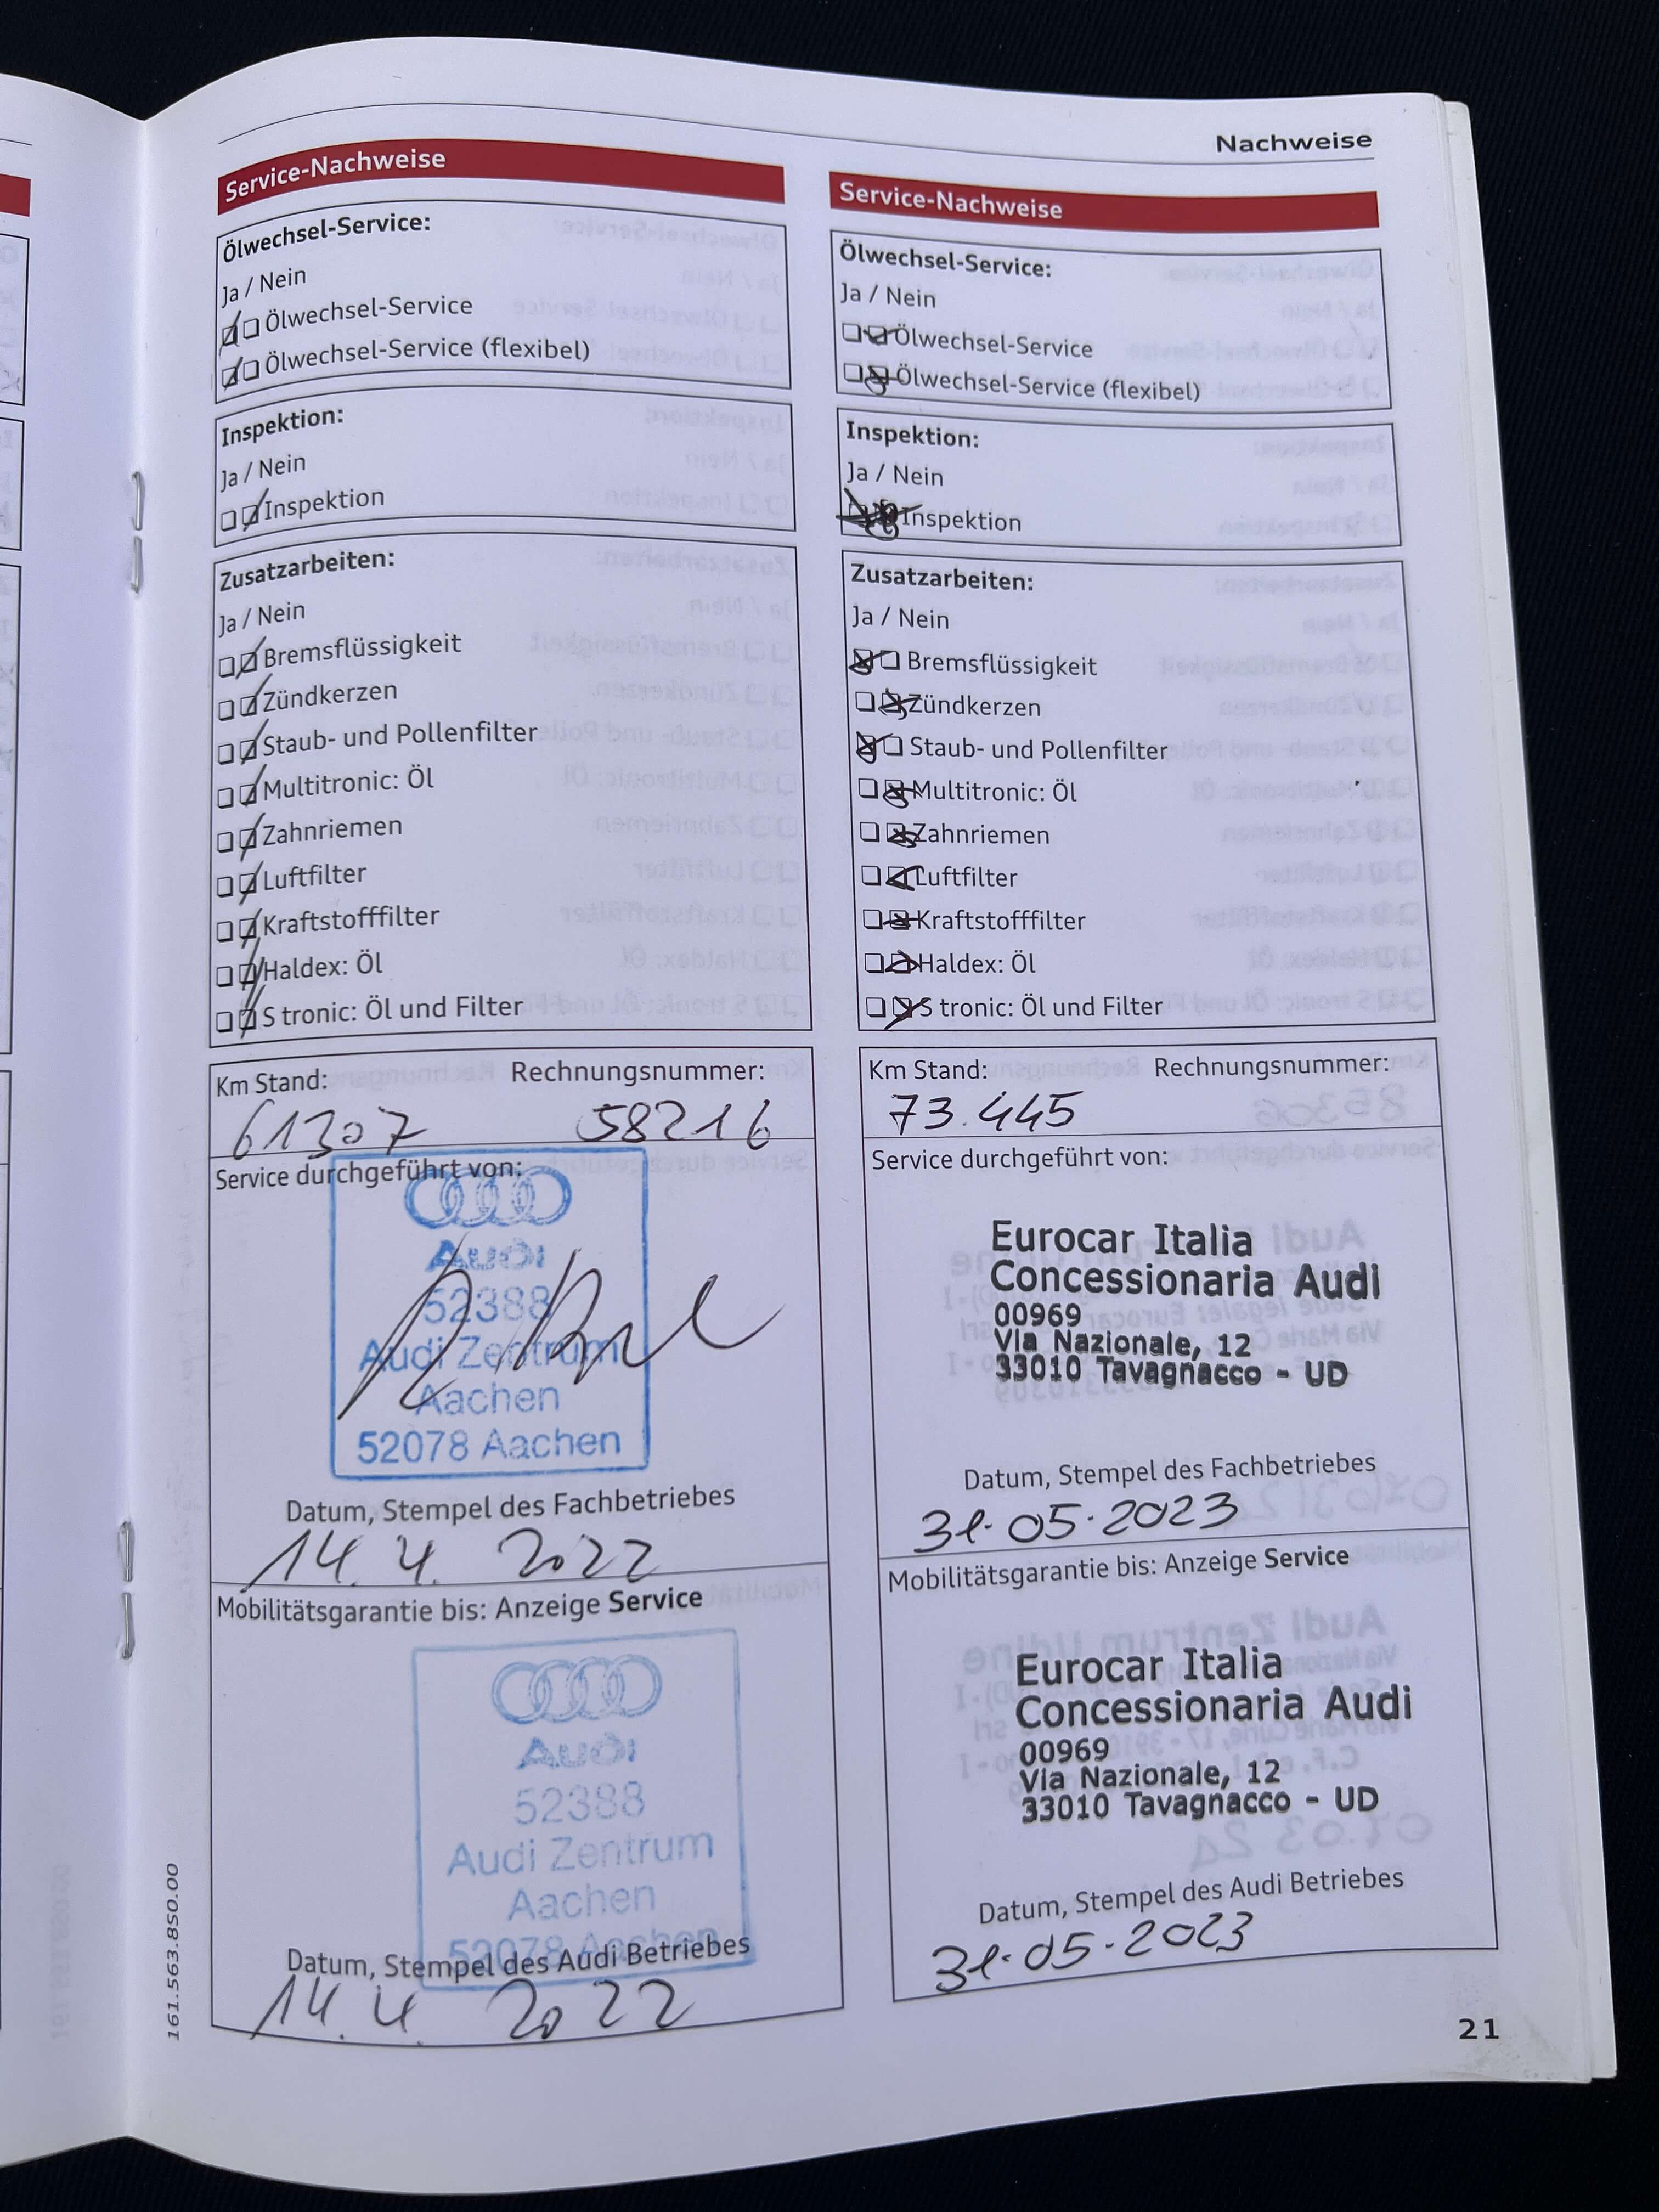 Nachweise
Service-Nachweise
Ölwechsel-Service:
Ja / Nein
Ölwechsel-Service
Ölwechsel-Service (flexibel)
Inspektion:
Ja / Nein
Inspektion
Zusatzarbeiten:
Ja / Nein
Bremsflüssigkeit
Zündkerzen
Staub- und Pollenfilter
Multitronic: Öl
Zahnriemen
Luftfilter
Kraftstofffilter
Haldex: Öl
S tronic: Öl und Filter
Km Stand: Rechnungsnummer:
61307 58216
Service durchgeführt von:
Audi
52388
Audi Zentrum
Aachen
52078 Aachen
Datum, Stempel des Fachbetriebes
14. 4. 2022
Mobilitätsgarantie bis: Anzeige Service
Audi
52388
Audi Zentrum
Aachen
52078 Aachen
Datum, Stempel des Audi Betriebes
14. 4. 2022
Service-Nachweise
Ölwechsel-Service:
Ja / Nein
Ölwechsel-Service
Ölwechsel-Service (flexibel)
Inspektion:
Ja / Nein
Inspektion
Zusatzarbeiten:
Ja / Nein
Bremsflüssigkeit
Zündkerzen
Staub- und Pollenfilter
Multitronic: Öl
Zahnriemen
Luftfilter
Kraftstofffilter
Haldex: Öl
S tronic: Öl und Filter
Km Stand: Rechnungsnummer:
73.445
Service durchgeführt von:
Eurocar Italia
Concessionaria Audi
00969
Via Nazionale, 12
33010 Tavagnacco - UD
Datum, Stempel des Fachbetriebes
31.05.2023
Mobilitätsgarantie bis: Anzeige Service
Eurocar Italia
Concessionaria Audi
00969
Via Nazionale, 12
33010 Tavagnacco - UD
Datum, Stempel des Audi Betriebes
31.05.2023
161.563.850.00
21